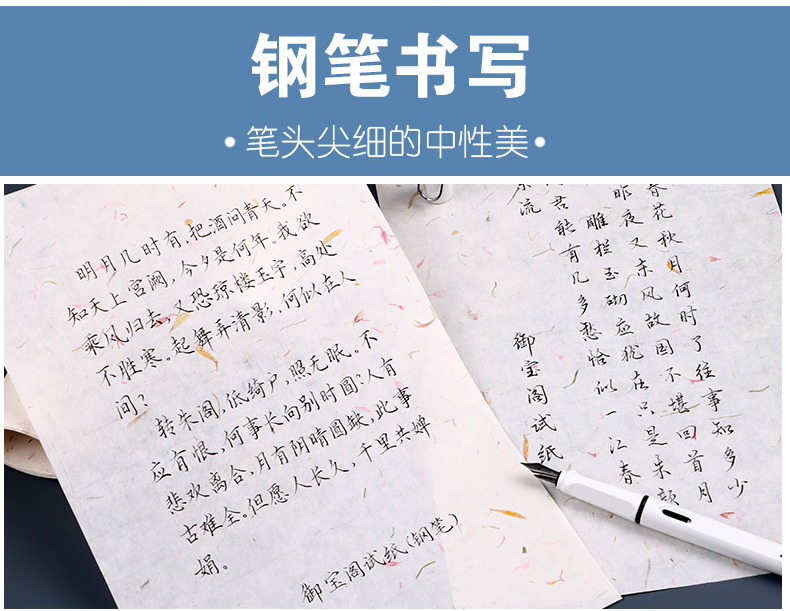 钢笔书写
笔头尖细的中性美
明月几时有，把酒问青天。不
知天上宫阙，今夕是何年。我欲
乘风归去，又恐琼楼玉宇，高处
不胜寒。起舞弄清影，何似在人
间？
转朱阁，低绮户，照无眠。不
应有恨，何事长向别时圆？人有
悲欢离合，月有阴晴圆缺，此事
古难全。但愿人长久，千里共婵
娟。
御宝阁试纸(钢笔)
春花秋月何时了往事知多少
昨夜又东风故国不堪回首月
雕栏玉砌应犹在只是朱颜
君能有几多愁恰似一江春
流
御宝阁试纸